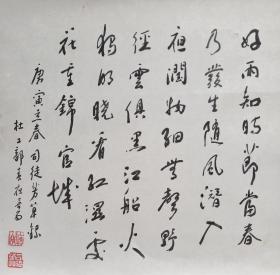 好雨知時節當春
乃發生隨風潛入
夜潤物細無聲野
徑雲俱黑江船火
獨明曉看紅濕處
花重錦官城
庚寅立春司徒
杜工部春夜